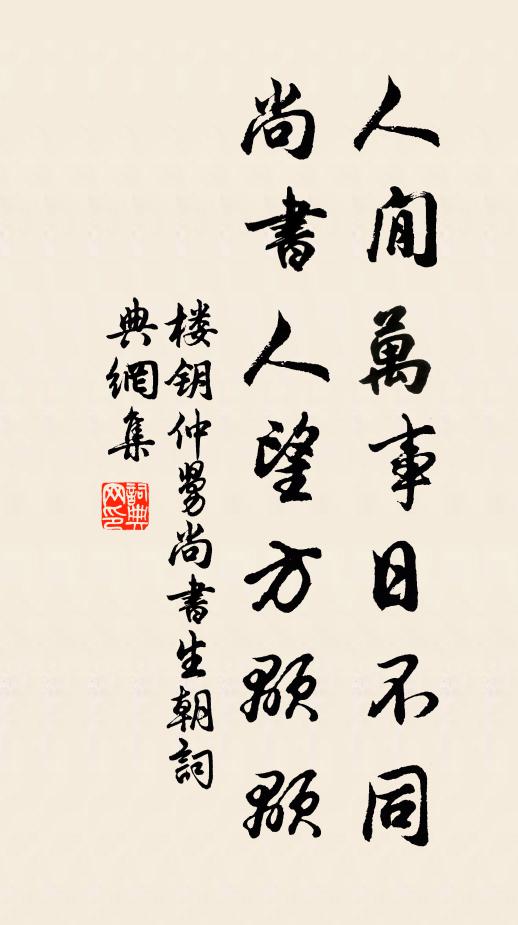 人閒萬事日不同
尚書人望方顒顒
楼钥仲舅尚書生朝詞
典網集
詞典
网印